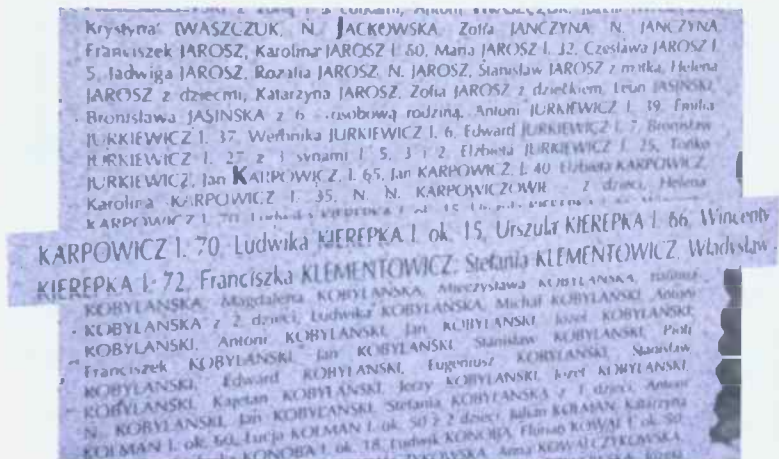 Krystyna IWASZCZUK, N. JACKOWSKA, Zofia JANCZYNA N. JANCZYNA,
Franciszek JAROSZ, Karolina JAROSZ l. 60, Maria JAROSZ l. 32, Czesława JAROSZ l.
5, Jadwiga JAROSZ, Rozalia JAROSZ, N. JAROSZ, Stanisław JAROSZ z matką, Helena
JAROSZ z dziećmi, Katarzyna JAROSZ, Zofia JAROSZ z dzieckiem, Leon JASIŃSKI,
Bronisława JASIŃSKA z 6 osobową rodziną, Antoni JURKIEWICZ l. 39, Emilia
JURKIEWICZ l. 37, Weronika JURKIEWICZ l. 6, Edward JURKIEWICZ l. 7, Bronisław
JURKIEWICZ l. 27 z 3 synami l. 5, 3 i 2, Elżbieta JURKIEWICZ l. 25, Tońko
JURKIEWICZ, Jan KARPOWICZ, l. 65, Jan KARPOWICZ, l. 40 Elżbieta KARPOWICZ,
Karolina KARPOWICZ l. 35, N. N. KARPOWICZOWIE z dzieci, Helena
KARPOWICZ l. 70, Ludwika KIEREPKA l. ok. 15, Urszula KIEREPKA l. 66, Wincenty
KIEREPKA l. 72, Franciszka KLEMENTOWICZ, Stefania KLEMENTOWICZ, Władysław
KOBYLAŃSKA, Magdalena KOBYLAŃSKA, Mieczysława KOBYLAŃSKA,
KOBYLAŃSKA z 2 dzieci, Ludwika KOBYLAŃSKA, Michał KOBYLAŃSKI, Antoni
KOBYLAŃSKI, Antoni KOBYLAŃSKI, Jan KOBYLAŃSKI, Józef KOBYLAŃSKI,
Franciszek KOBYLAŃSKI, Jan KOBYLAŃSKI, Stanisław KOBYLAŃSKI, Piotr
KOBYLAŃSKI, Edward KOBYLAŃSKI, Eugeniusz KOBYLAŃSKI, Stanisław
KOBYLAŃSKI, Kajetan KOBYLAŃSKI, Jerzy KOBYLAŃSKI, Józef KOBYLAŃSKI,
N. KOBYLAŃSKI, Jan KOBYLAŃSKI, Stefania KOBYLAŃSKA z 3 dzieci, Antoni
KOLMAN l. ok. 60, Łucja KOLMAN l. ok. 50 z 2 dzieci, Julian KOLMAN, Katarzyna
KONOBA l. ok. 18, Ludwik KONOBA, Florian KOWAL l. ok. 50,
Anna KOWALCZYKOWSKA,